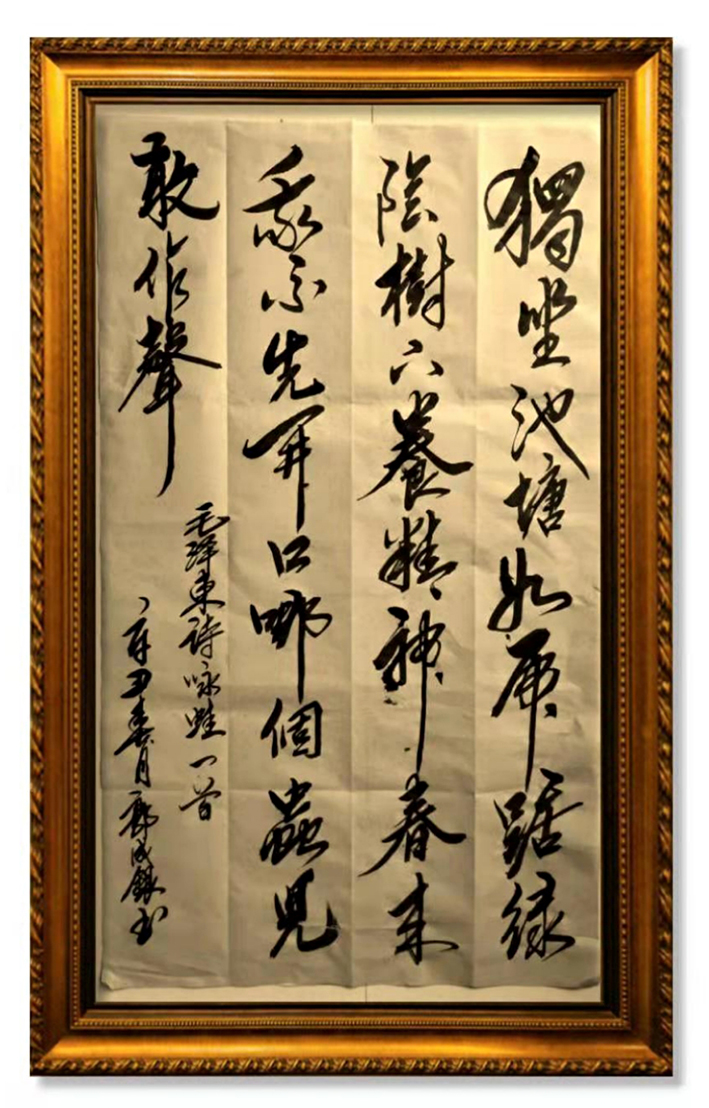 獨坐池塘如虎踞綠
陰樹下養精神春來
我不先開口哪個蟲兒
敢作聲
毛澤東詩咏蛙一首
辛丑春月郭成銀书